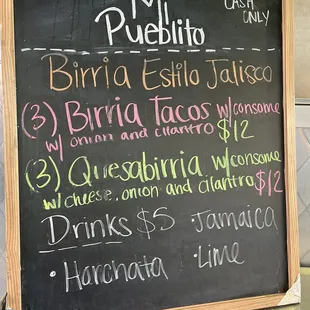 Mi
CASH
ONLY
Pueblito
Birria Estilo Jalisco
(3) Birria Tacos w/consome
w/ onion and cilantro $12
(3) Quesabirria w/consome
w/cheese, onion and cilantro $12
Drinks $5 · Jamaica
· Horchata · Lime